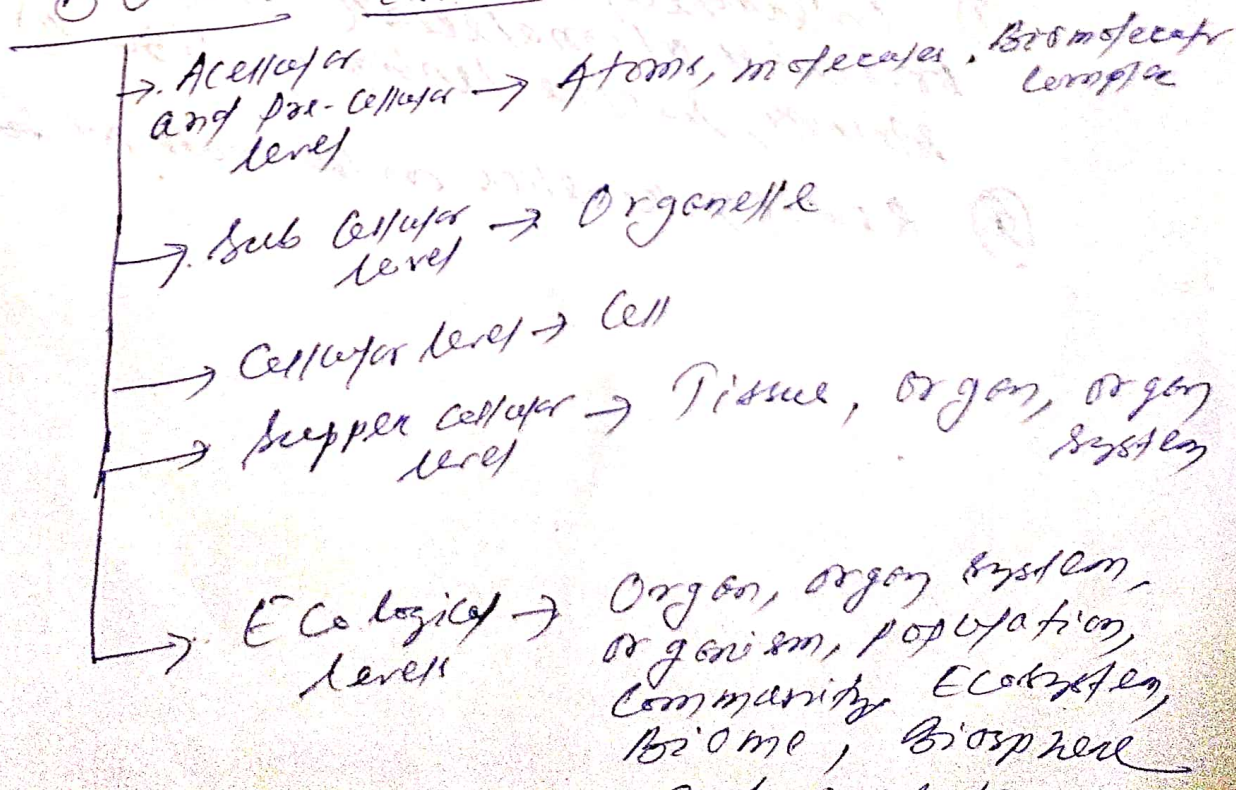 → Acellular
and Pre-cellular → Atoms, molecules, Biomolecular
level complex
→ Sub Cellular → Organelle
level
→ Cellular level → Cell
→ Supper cellular → Tissue, organ, organ
level system
→ Ecological → Organ, organ system,
levels organism, population,
Community, Ecosystem,
Biome, Biosphere